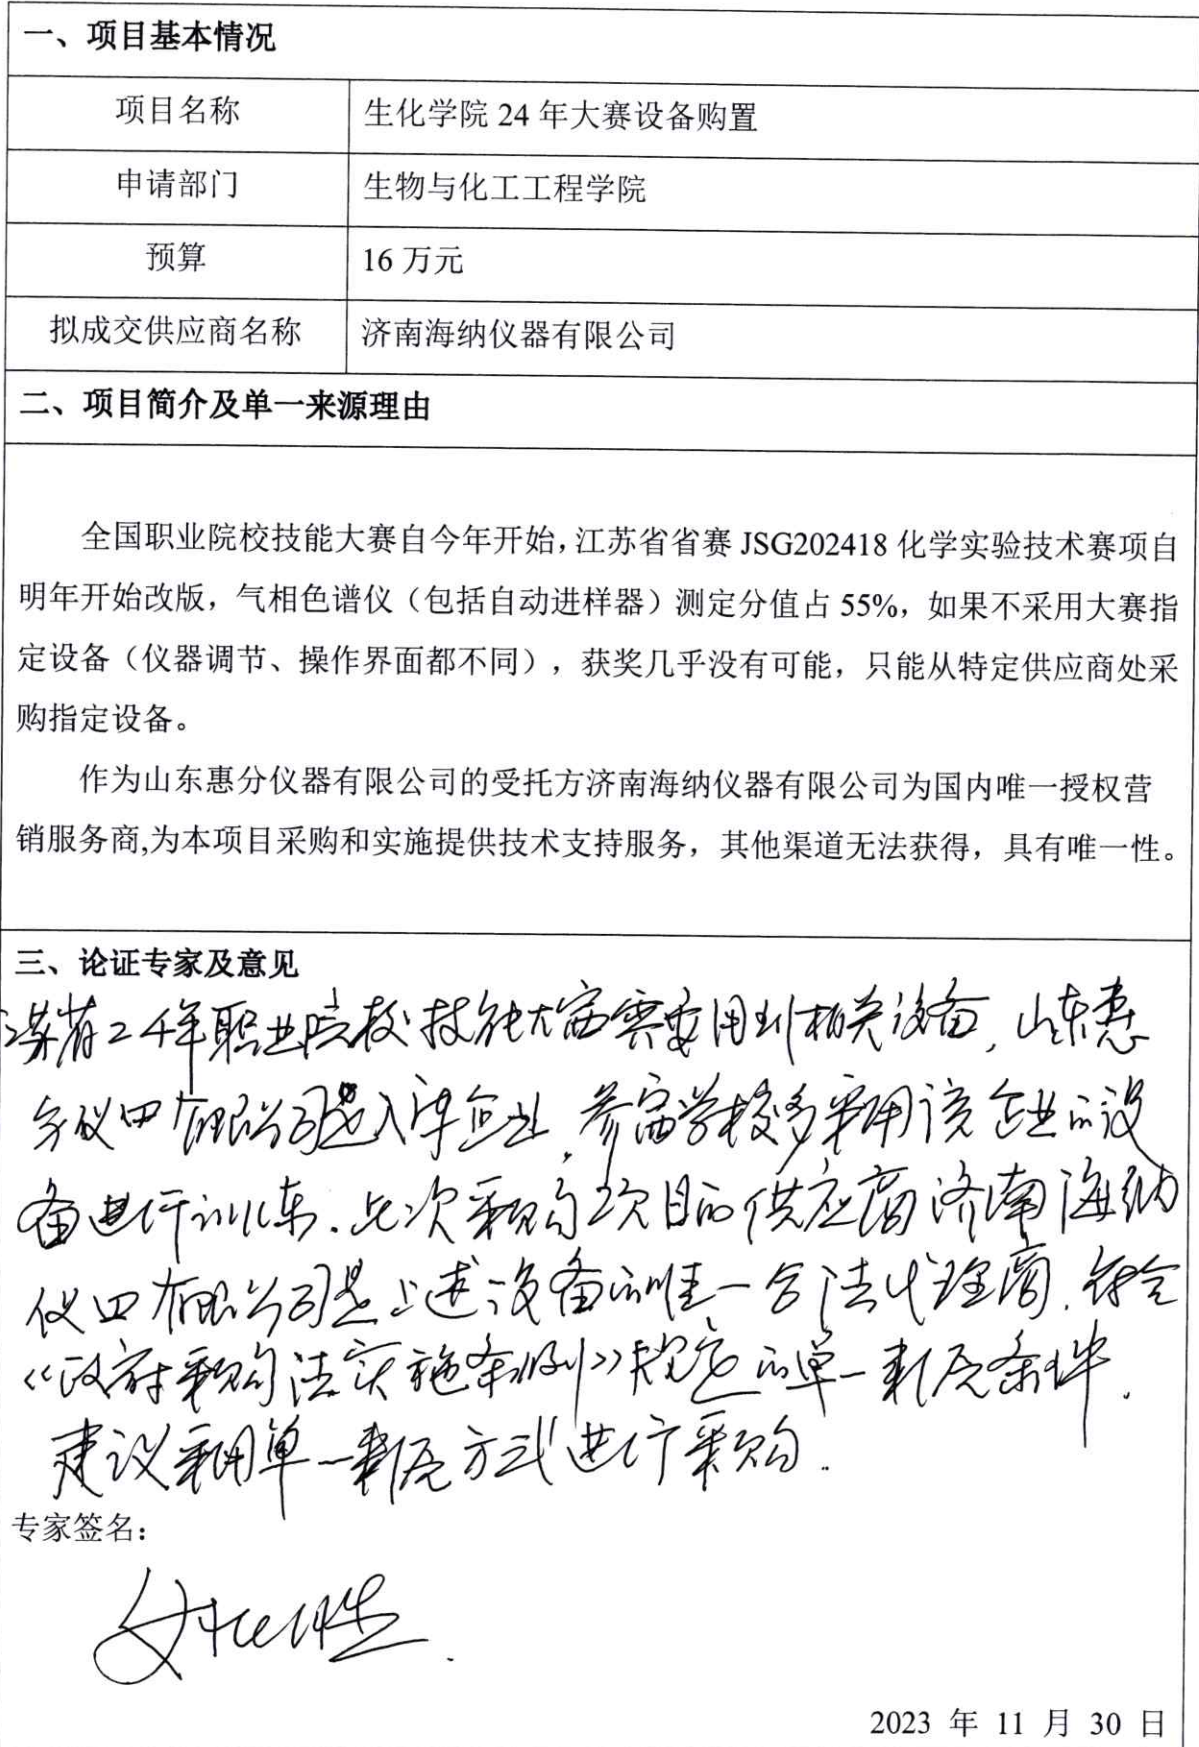 一、项目基本情况
项目名称 生化学院 24 年大赛设备购置
申请部门 生物与化工工程学院
预算 16 万元
拟成交供应商名称 济南海纳仪器有限公司
二、项目简介及单一来源理由
全国职业院校技能大赛自今年开始，江苏省省赛 JSG202418 化学实验技术赛项自
明年开始改版，气相色谱仪（包括自动进样器）测定分值占 55%，如果不采用大赛指
定设备（仪器调节、操作界面都不同），获奖几乎没有可能，只能从特定供应商处采
购指定设备。
作为山东惠分仪器有限公司的受托方济南海纳仪器有限公司为国内唯一授权营
销服务商,为本项目采购和实施提供技术支持服务，其他渠道无法获得，具有唯一性。
三、论证专家及意见
江苏省24年职业院校技能大赛需要用到相关设备，山东惠
分仪器有限公司是入库企业，参赛学校多采用该企业的设
备进行训练。此次采购项目的供应商济南海纳
仪器有限公司是上述设备的唯一合法代理商，符合
《政府采购法实施条例》规定的单一来源条件，
建议采用单一来源方式进行采购．
专家签名：
2023 年 11 月 30 日